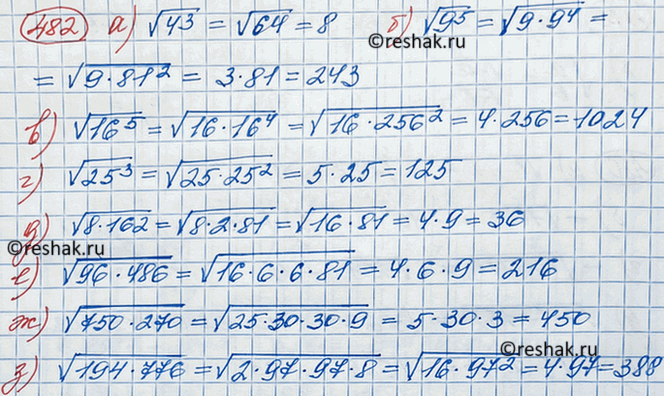 482 а) √4³ = √64 = 8 б) √9⁵ = √9·9⁴ =
©reshak.ru
= √9·81² = 3·81 = 243
в) √16⁵ = √16·16⁴ = √16·256² = 4·256 = 1024
г) √25³ = √25·25² = 5·25 = 125
д) √8·162 = √8·2·81 = √16·81 = 4·9 = 36
©reshak.ru
е) √96·486 = √16·6·6·81 = 4·6·9 = 216
ж) √750·270 = √25·30·30·9 = 5·30·3 = 450
©reshak.ru
з) √194·776 = √2·97·97·8 = √16·97² = 4·97 = 388